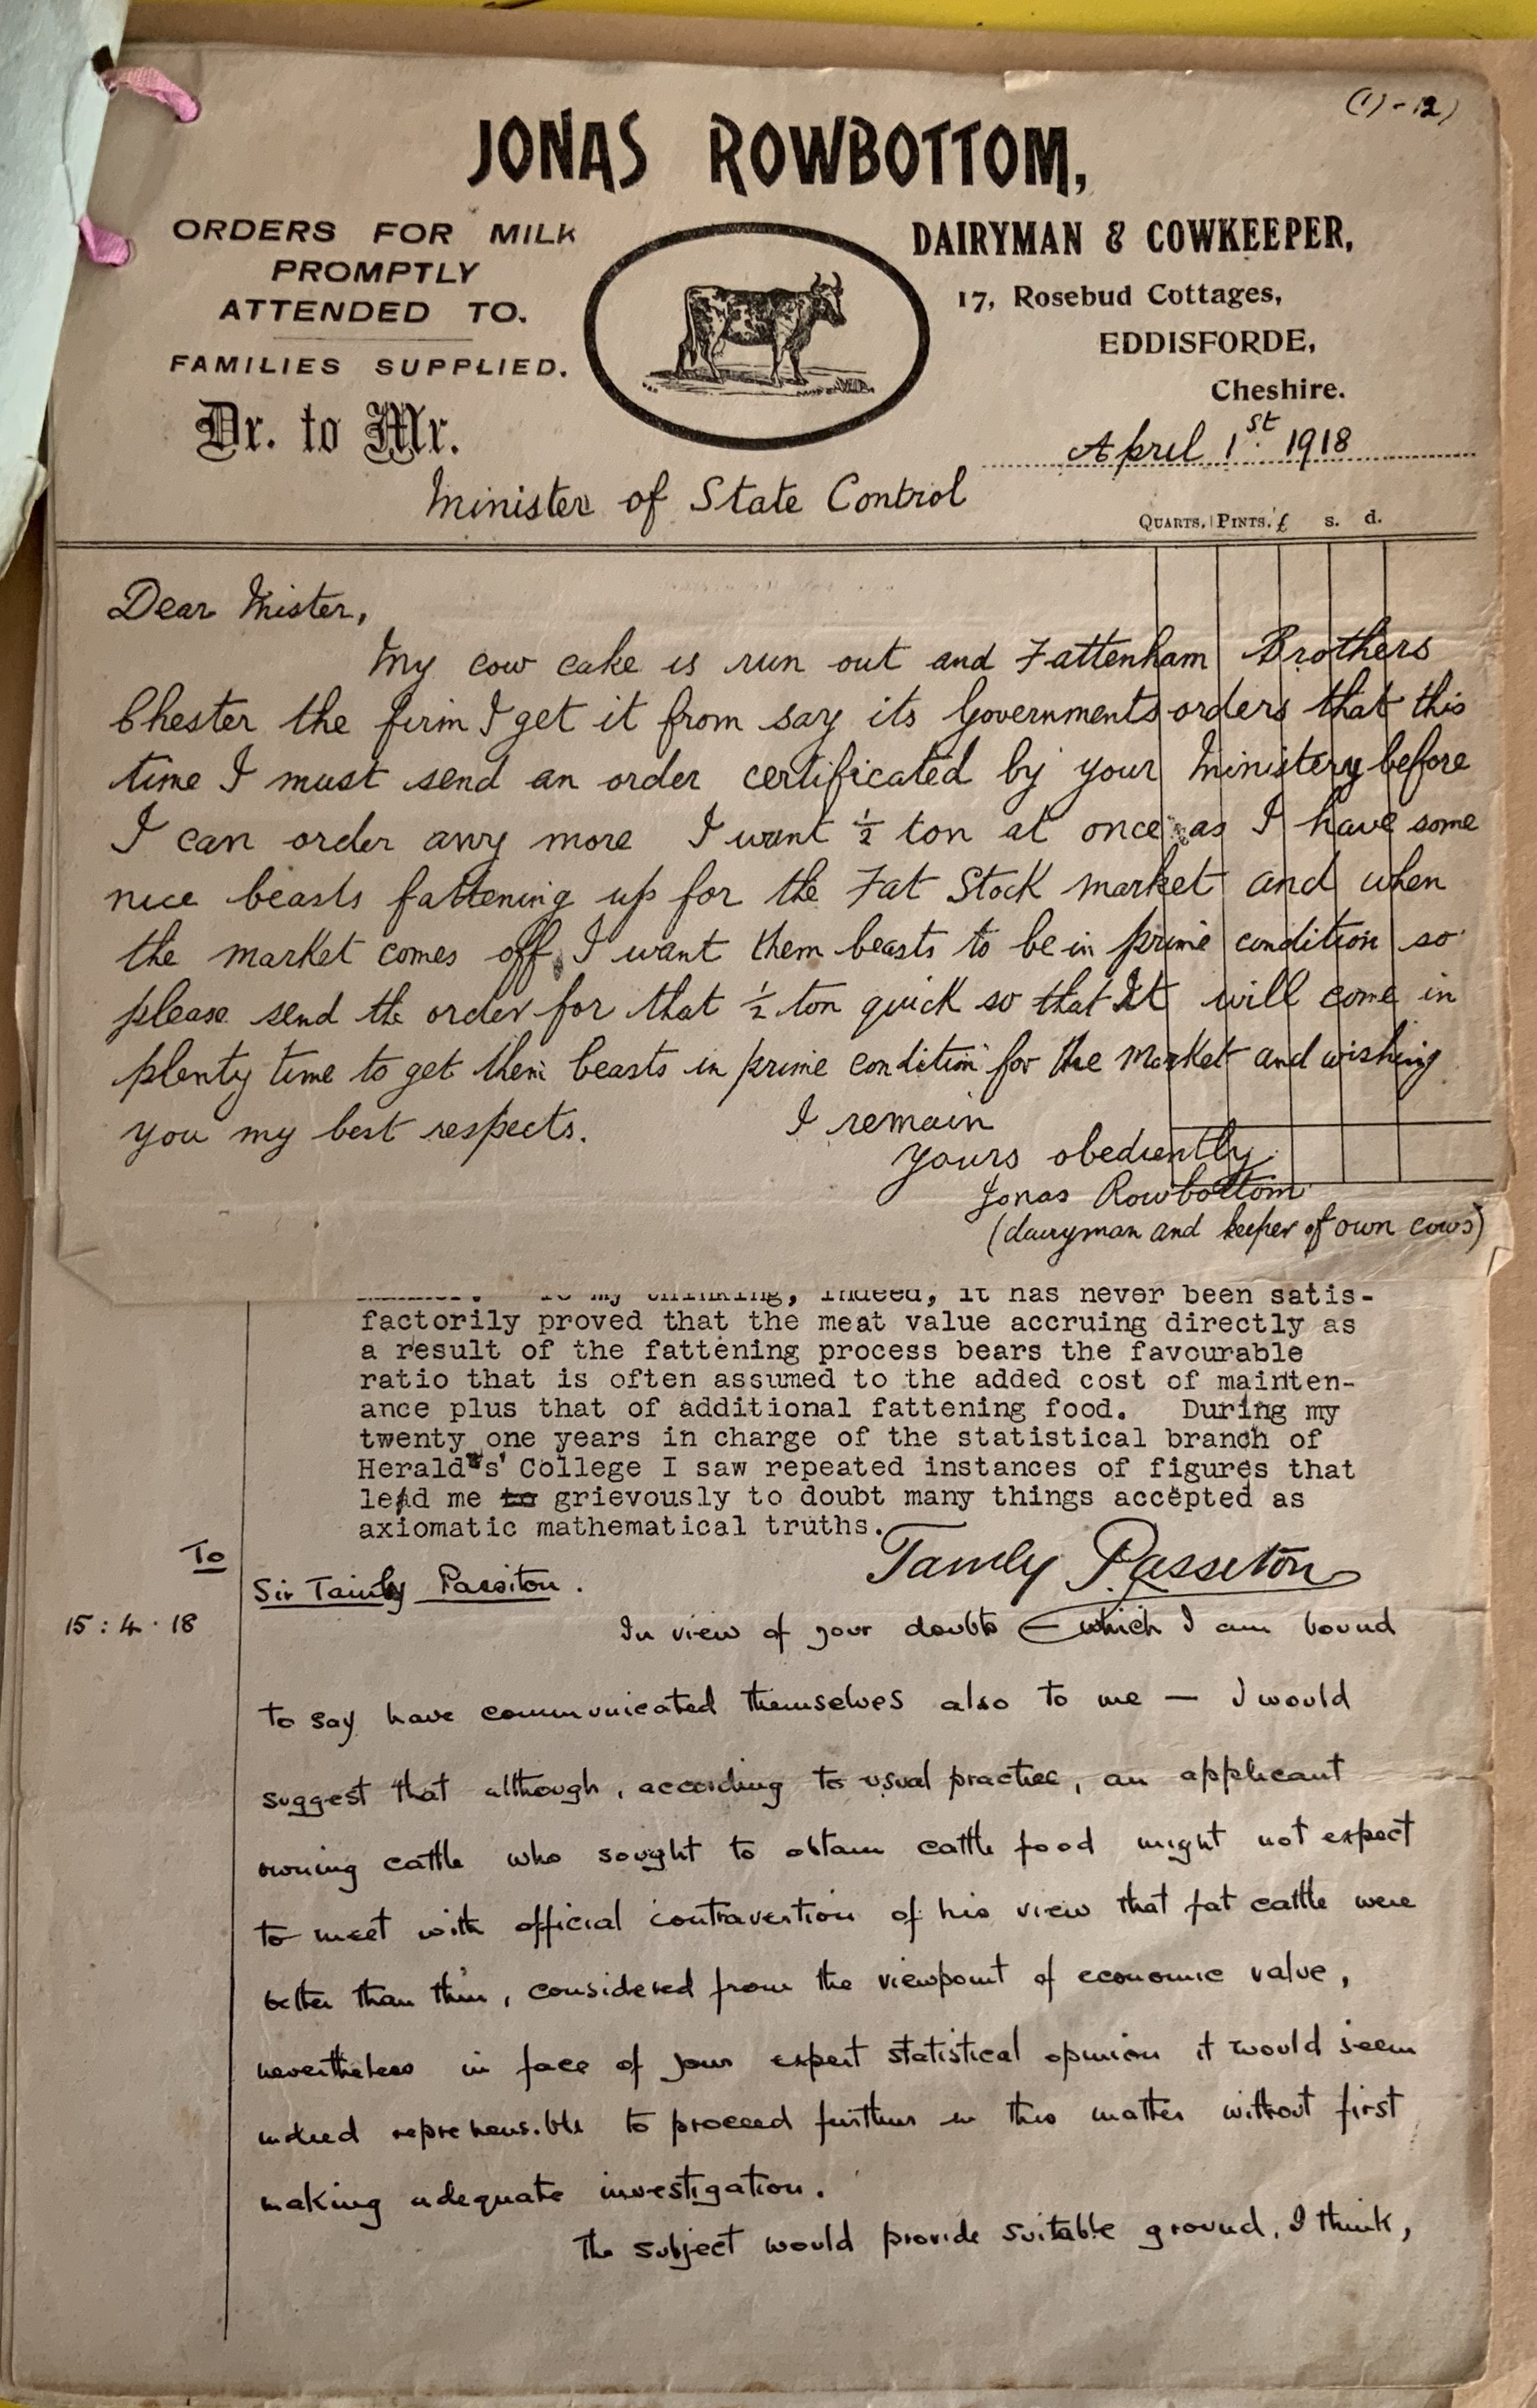 (1)-12)
JONAS ROWBOTTOM,
ORDERS FOR MILK
PROMPTLY
ATTENDED TO.
FAMILIES SUPPLIED.
Dr. to Mr.
DAIRYMAN & COWKEEPER,
17, Rosebud Cottages,
EDDISFORDE,
Cheshire.
April 1st. 1918
Minister of State Control
QUARTS. PINTS. £ s. d.
Dear Mister,
My cow cake is run out and Fattenham Brothers
Chester the firm I get it from say its Governments orders that this
time I must send an order certificated by your Ministery before
I can order any more I want ½ ton at once as I have some
nice beasts fattening up for the Fat Stock market and when
the market comes off I want them beasts to be in prime condition so
please send the order for that ½ ton quick so that It will come in
plenty time to get them beasts in prime condition for the Market and wishing
you my best respects. I remain
yours obediently
Jonas Rowbottom
(dairyman and keeper of own cows)
To my thinking, indeed, it has never been satis-
factorily proved that the meat value accruing directly as
a result of the fattening process bears the favourable
ratio that is often assumed to the added cost of mainten-
ance plus that of additional fattening food. During my
twenty one years in charge of the statistical branch of
Heralds' College I saw repeated instances of figures that
led me to grievously to doubt many things accepted as
axiomatic mathematical truths.
Tamly Passeton
To
Sir Tamly Passiton.
15:4.18
In view of your doubts (which I am bound
to say have communicated themselves also to me — I would
suggest that although, according to usual practice, an applicant
owning cattle who sought to obtain cattle food might not expect
to meet with official contravertion of his view that fat cattle were
better than thin, considered from the viewpoint of economic value,
nevertheless in face of your expert statistical opinion it would seem
indeed reprehensible to proceed further in this matter without first
making adequate investigation.
The subject would provide suitable ground, I think,